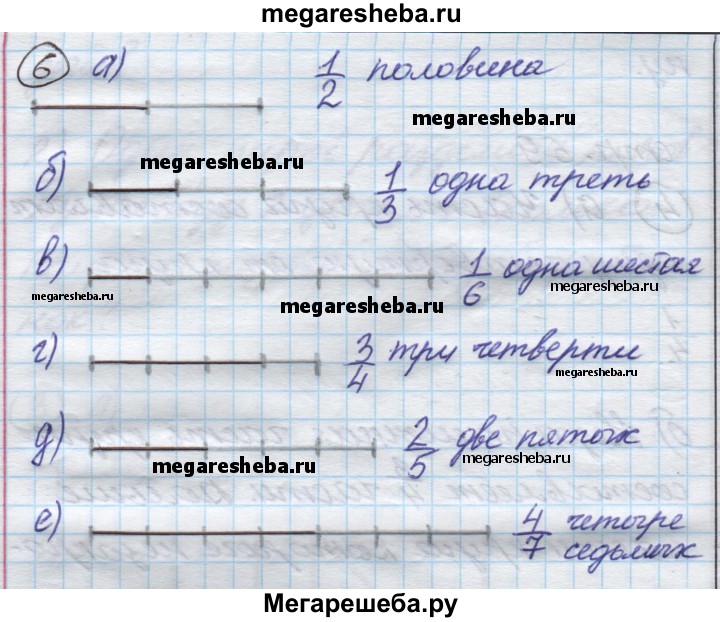 megaresheba.ru
6 а) 1/2 половина
megaresheba.ru
megaresheba.ru
б) 1/3 одна треть
в) 1/6 одна шестая
megaresheba.ru
megaresheba.ru
megaresheba.ru
г) 3/4 три четверти
megaresheba.ru
д) 2/5 две пятых
megaresheba.ru
megaresheba.ru
е) 4/7 четыре
седьмих
Мегарешеба.ру